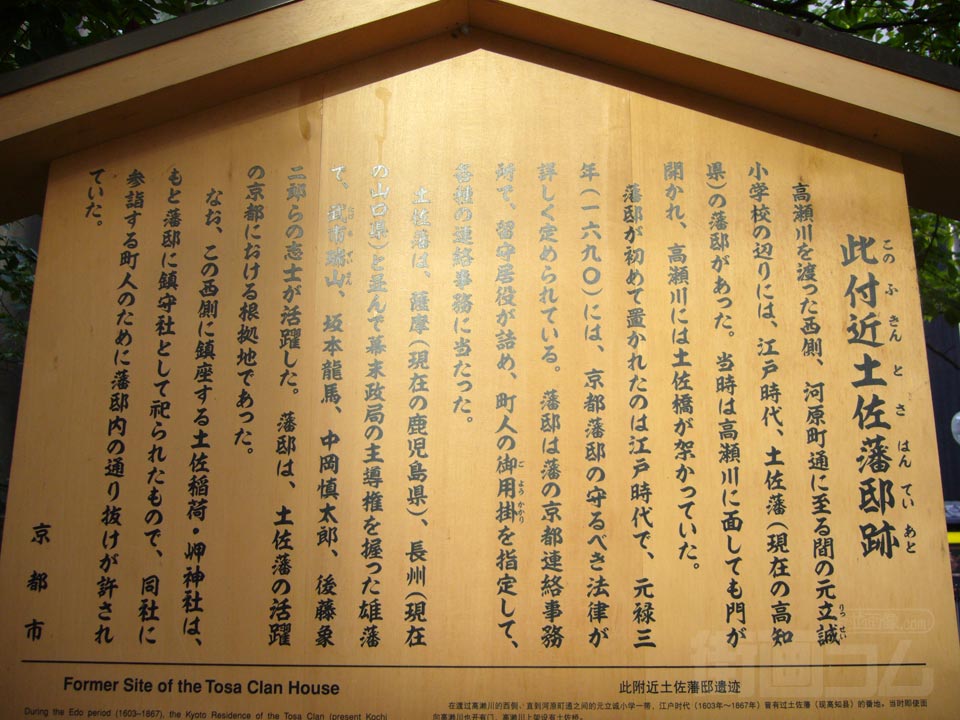 此付近土佐藩邸跡
このふきんとさはんていあと
高瀬川を渡った西側、河原町通に至る間の元立誠
りっせい
小学校の辺りには、江戸時代、土佐藩(現在の高知
県)の藩邸があった。当時は高瀬川に面しても門が
開かれ、高瀬川には土佐橋が架かっていた。
藩邸が初めて置かれたのは江戸時代で、元禄三
年(一六九〇)には、京都藩邸の守るべき法律が
詳しく定められている。藩邸は藩の京都連絡事務
所で、留守居役が詰め、町人の御用掛を指定して、
ごようかかり
各種の連絡事務に当たった。
土佐藩は、薩摩(現在の鹿児島県)、長州(現在
の山口県)と並んで幕末政局の主導権を握った雄藩
で、武市瑞山、坂本龍馬、中岡慎太郎、後藤象
二郎らの志士が活躍した。藩邸は、土佐藩の活躍
の京都における根拠地であった。
なお、この西側に鎮座する土佐稲荷・岬神社は、
もと藩邸に鎮守社として祀られたもので、同社に
参詣する町人のために藩邸内の通り抜けが許され
ていた。
京都市
Former Site of the Tosa Clan House
During the Edo period (1603–1867), the Kyoto Residence of the Tosa Clan (present Kochi
此附近土佐藩邸遗迹
在渡过高濑川的西侧、直到河原町通之间的元立诚小学一带，江户时代（1603年～1867年）曾有过土佐藩（现高知县）的藩地。当时即使面
向高濑川也开有门，高濑川上架设有土佐桥。
街画コム